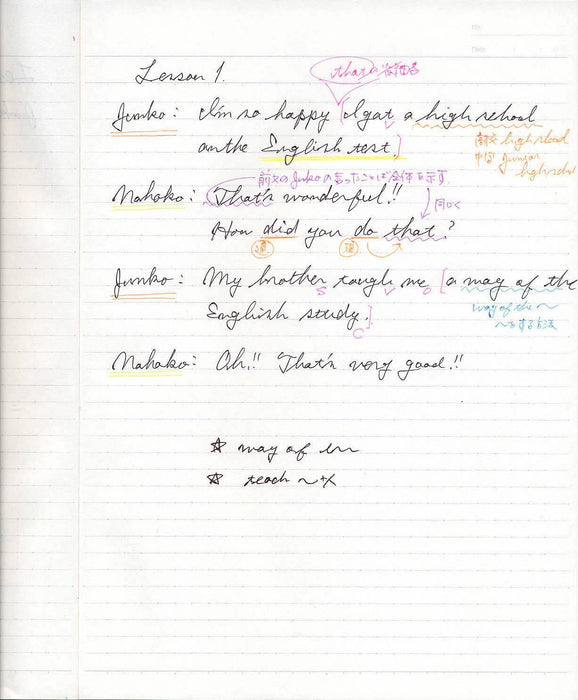 No.
Date
Lesson 1.
thatの省略
Junko: I'm so happy [I got a high school
on the English test.]
高校 high school
中学 junior
high school
前文のJunkoの言ったことば全体を示す
Nahoko: That's wonderful!!
同じく
How did you do that?
過 現
Junko: My brother taugh me [a way of the
S V O
English study.]
C
way of the ~
~する方法
Nahoko: Oh!! That's very good!!
☆ way of
☆ teach ~